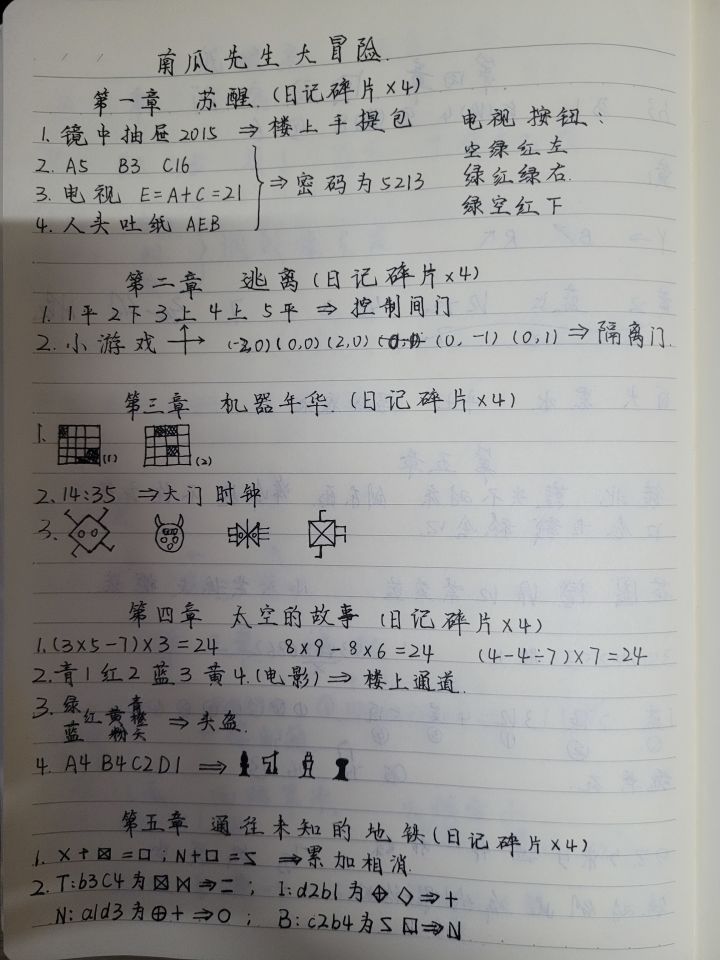 南瓜先生大冒险.
第一章 苏醒.(日记碎片×4)
1. 镜中抽屉2015 ⇒ 楼上手提包
2. A5 B3 C16
3. 电视 E=A+C=21
4. 人头吐纸 AEB
⇒ 密码为5213
电视按钮:
空绿红左
绿红绿右.
绿空红下
第二章 逃离(日记碎片×4)
1. 1平2下3上4上5平 ⇒ 控制间门
2. 小游戏 (-2,0)(0,0)(2,0) (0,-1)(0,1) ⇒ 隔离门.
第三章 机器年华.(日记碎片×4)
1. (1) (2)
2. 14:35 ⇒大门时钟
3.
第四章 太空的故事(日记碎片×4)
1. (3×5-7)×3=24 8×9-8×6=24 (4-4÷7)×7=24
2. 青1红2蓝3黄4.(电影)⇒ 楼上通道.
3. 绿蓝 红 黄粉 青橙 ⇒头盔.
4. A4 B4 C2 D1 ⇒
第五章 通往未知的地铁(日记碎片×4)
1. X+⊠=□;N+□=Σ ⇒累加相消.
2. T:b3C4为⊠⋈⇒=; I:d2b1为⊕◇⇒+
N:a1d3为⊕+⇒○; B:c2b4为Σ ⇒N